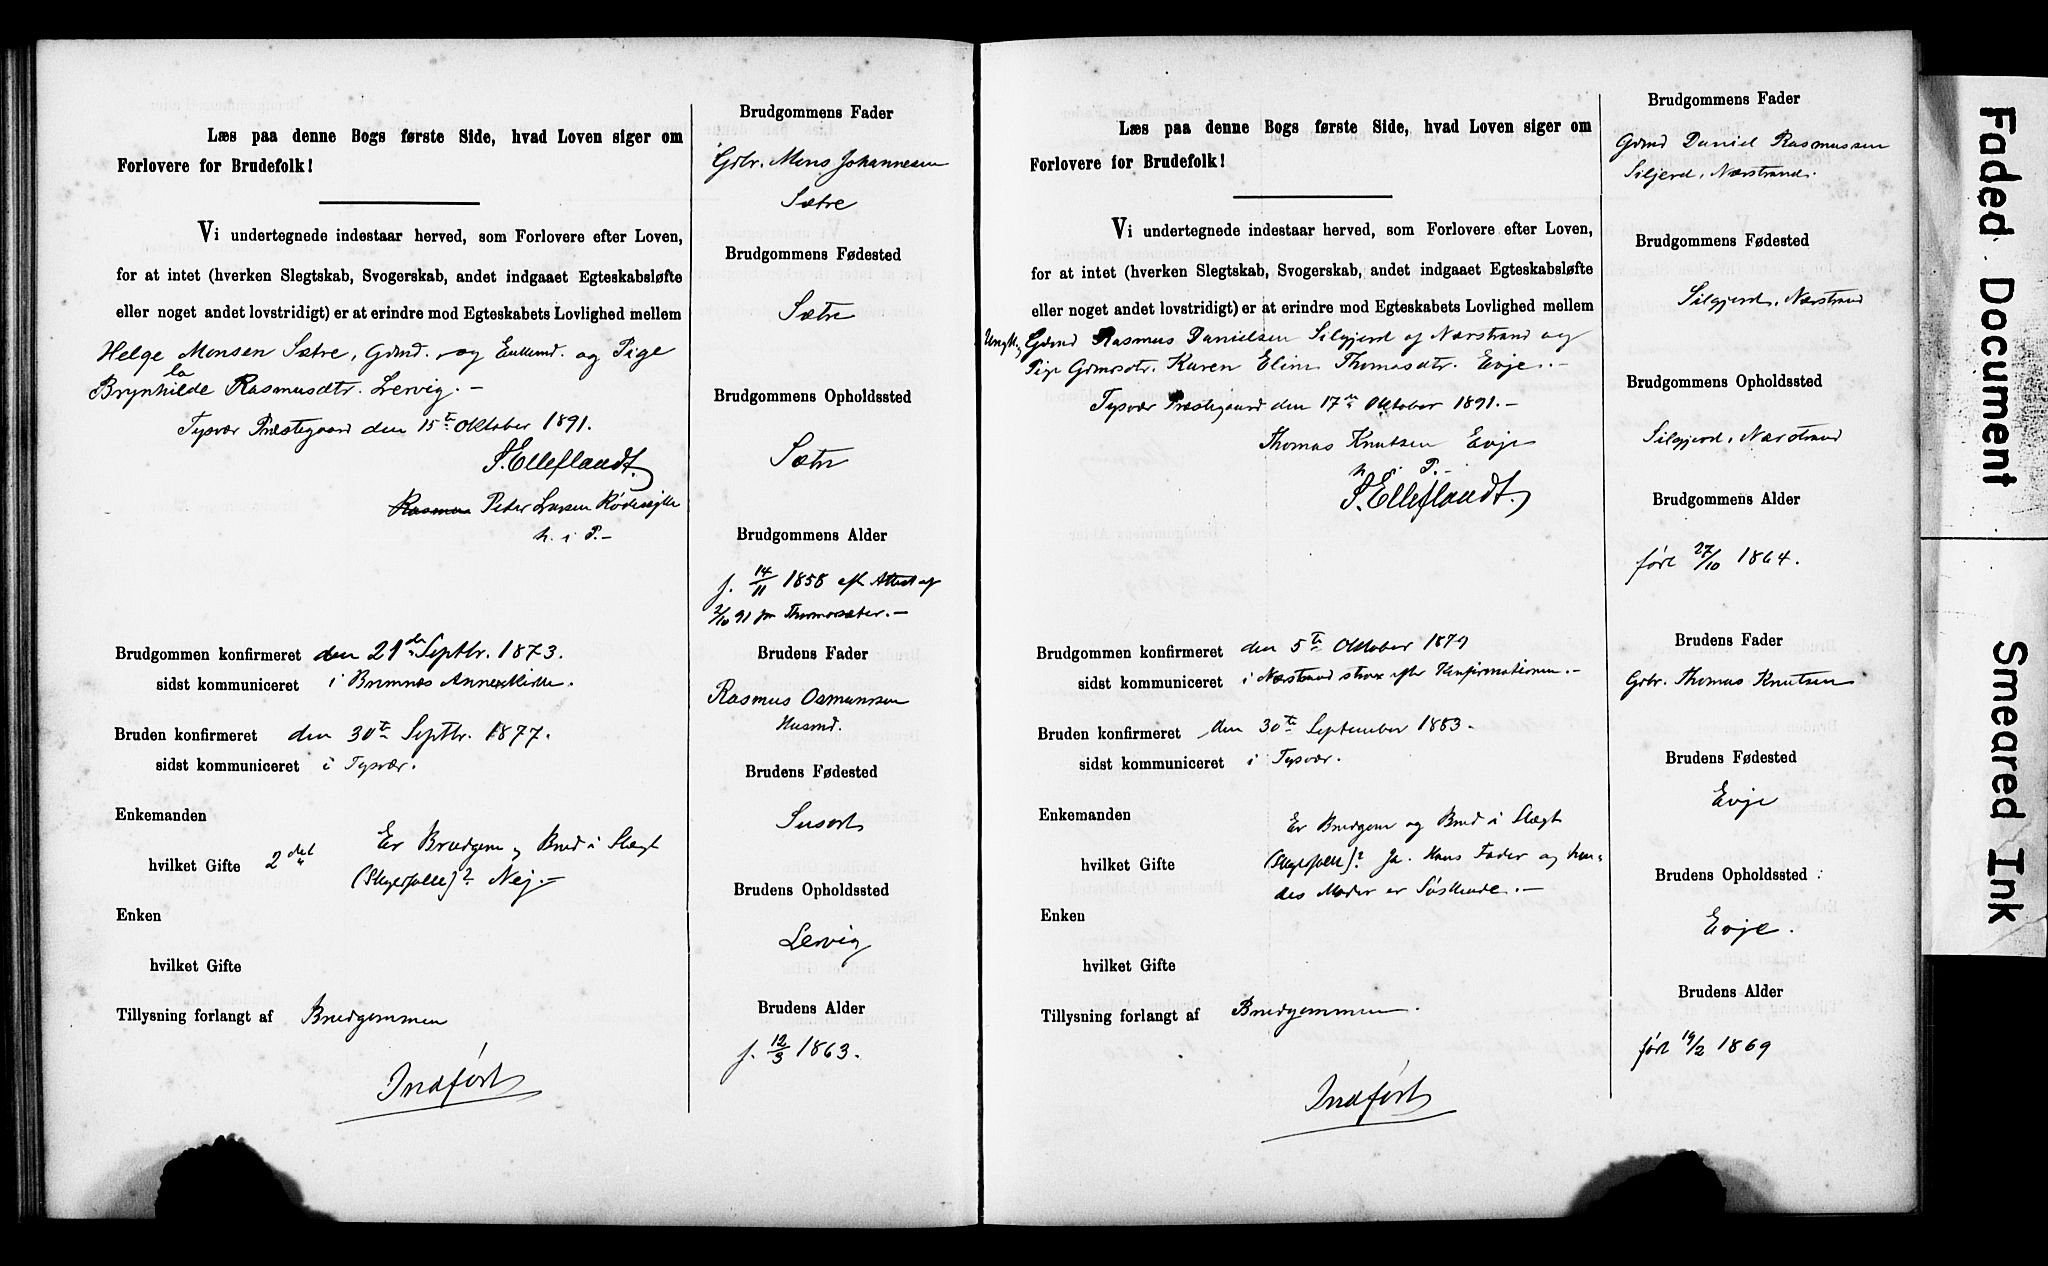 Læs paa denne Bogs første Side, hvad Loven siger om
Forlovere for Brudefolk!
Vi undertegnede indestaar herved, som Forlovere efter Loven,
for at intet (hverken Slegtskab, Svogerskab, andet indgaaet Egteskabsløfte
eller noget andet lovstridigt) er at erindre mod Egteskabets Lovlighed mellem
Helge Monsen Sætre, Gdmd. og Enkemd. og Pige
Brynhilde Rasmusdtr. Lervig. –
la
Tysvær Præstegaard den 15te Oktober 1891.
S. Elleflaadt.
Rasmus Peter Larsen
h. i P. –
Brudgommen konfirmeret den 21de Septbr. 1873.
sidst kommuniceret i Bremnes Annexkirke.
Bruden konfirmeret den 30te Septbr. 1877.
sidst kommuniceret i Tysvær.
Enkemanden
hvilket Gifte 2det
Er Brudgom og Brud i Slægt
(Skyldfolk)? Nej. –
Enken
hvilket Gifte
Tillysning forlangt af Brudgommen
Indført
Brudgommens Fader
Gbr. Mons Johannesen
Sætre
Brudgommens Fødested
Sætre
Brudgommens Opholdssted
Sætre
Brudgommens Alder
f. 14/11 1858 efter Attest af
2/10 91 fra
Brudens Fader
Rasmus Osmundsen
Husmd.
Brudens Fødested
Susort
Brudens Opholdssted
Lervig
Brudens Alder
f. 12/3 1863.
Læs paa denne Bogs første Side, hvad Loven siger om
Forlovere for Brudefolk!
Vi undertegnede indestaar herved, som Forlovere efter Loven,
for at intet (hverken Slegtskab, Svogerskab, andet indgaaet Egteskabsløfte
eller noget andet lovstridigt) er at erindre mod Egteskabets Lovlighed mellem
Ungk. og Gdmd Rasmus Danielsen Silgjerd af Nærstrand og
Pige Gdmdsdtr. Karen Eline Thomasdtr. Evje. –
Tysvær Præstegaard den 17de Oktober 1891. –
Thomas Knutsen Evje
h. i. P. –
S. Elleflaadt.
Brudgommen konfirmeret den 5te Oktober 1879
sidst kommuniceret i Nærstrand strax efter Konfirmationen. –
Bruden konfirmeret den 30te September 1883.
sidst kommuniceret i Tysvær.
Enkemanden
hvilket Gifte
Er Brudgom og Brud i Slægt
(Skyldfolk)? Ja. Hans Fader og hen-
des Moder er Søskende. –
Enken
hvilket Gifte
Tillysning forlangt af Brudgommen.
Indført
Brudgommens Fader
Gdmd Daniel Rasmussen
Siljerd, Nærstrand.
Brudgommens Fødested
Silgjerd, Nærstrand
Brudgommens Opholdssted
Silgjerd, Nærstrand
Brudgommens Alder
født 27/10 1864.
Brudens Fader
Gbr. Thomas Knutsen
Brudens Fødested
Evje
Brudens Opholdssted
Evje.
Brudens Alder
født 19/2 1869
Faded Document
Smeared Ink